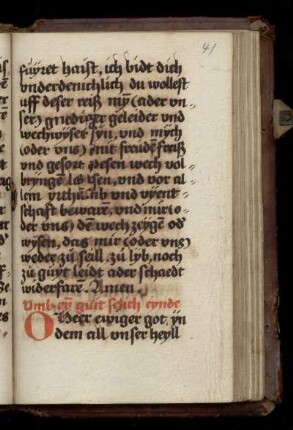 41
fuyret haist, ich bidt dich
vnderdenichlich du wollest
uff deser reiß myn (ader vn-
ser) gnediger geleider vnd
wechwyser syn, vnd mych
(oder vns) mit freude
vnd gesont desen wech vol-
bryngen lasen, vnd vor al-
lem vnd vyent-
schafft bewaren, vnd mir (o-
der vns) den wech zeygen vnd
wysen, das mir (oder vns)
weder zu seill, zu lyb, noch
zu guyt leidt ader schaedt
widerfare. Amen.
Vmb eyn guit selich eynde
O Heer ewiger got, yn
dem all vnser heyll